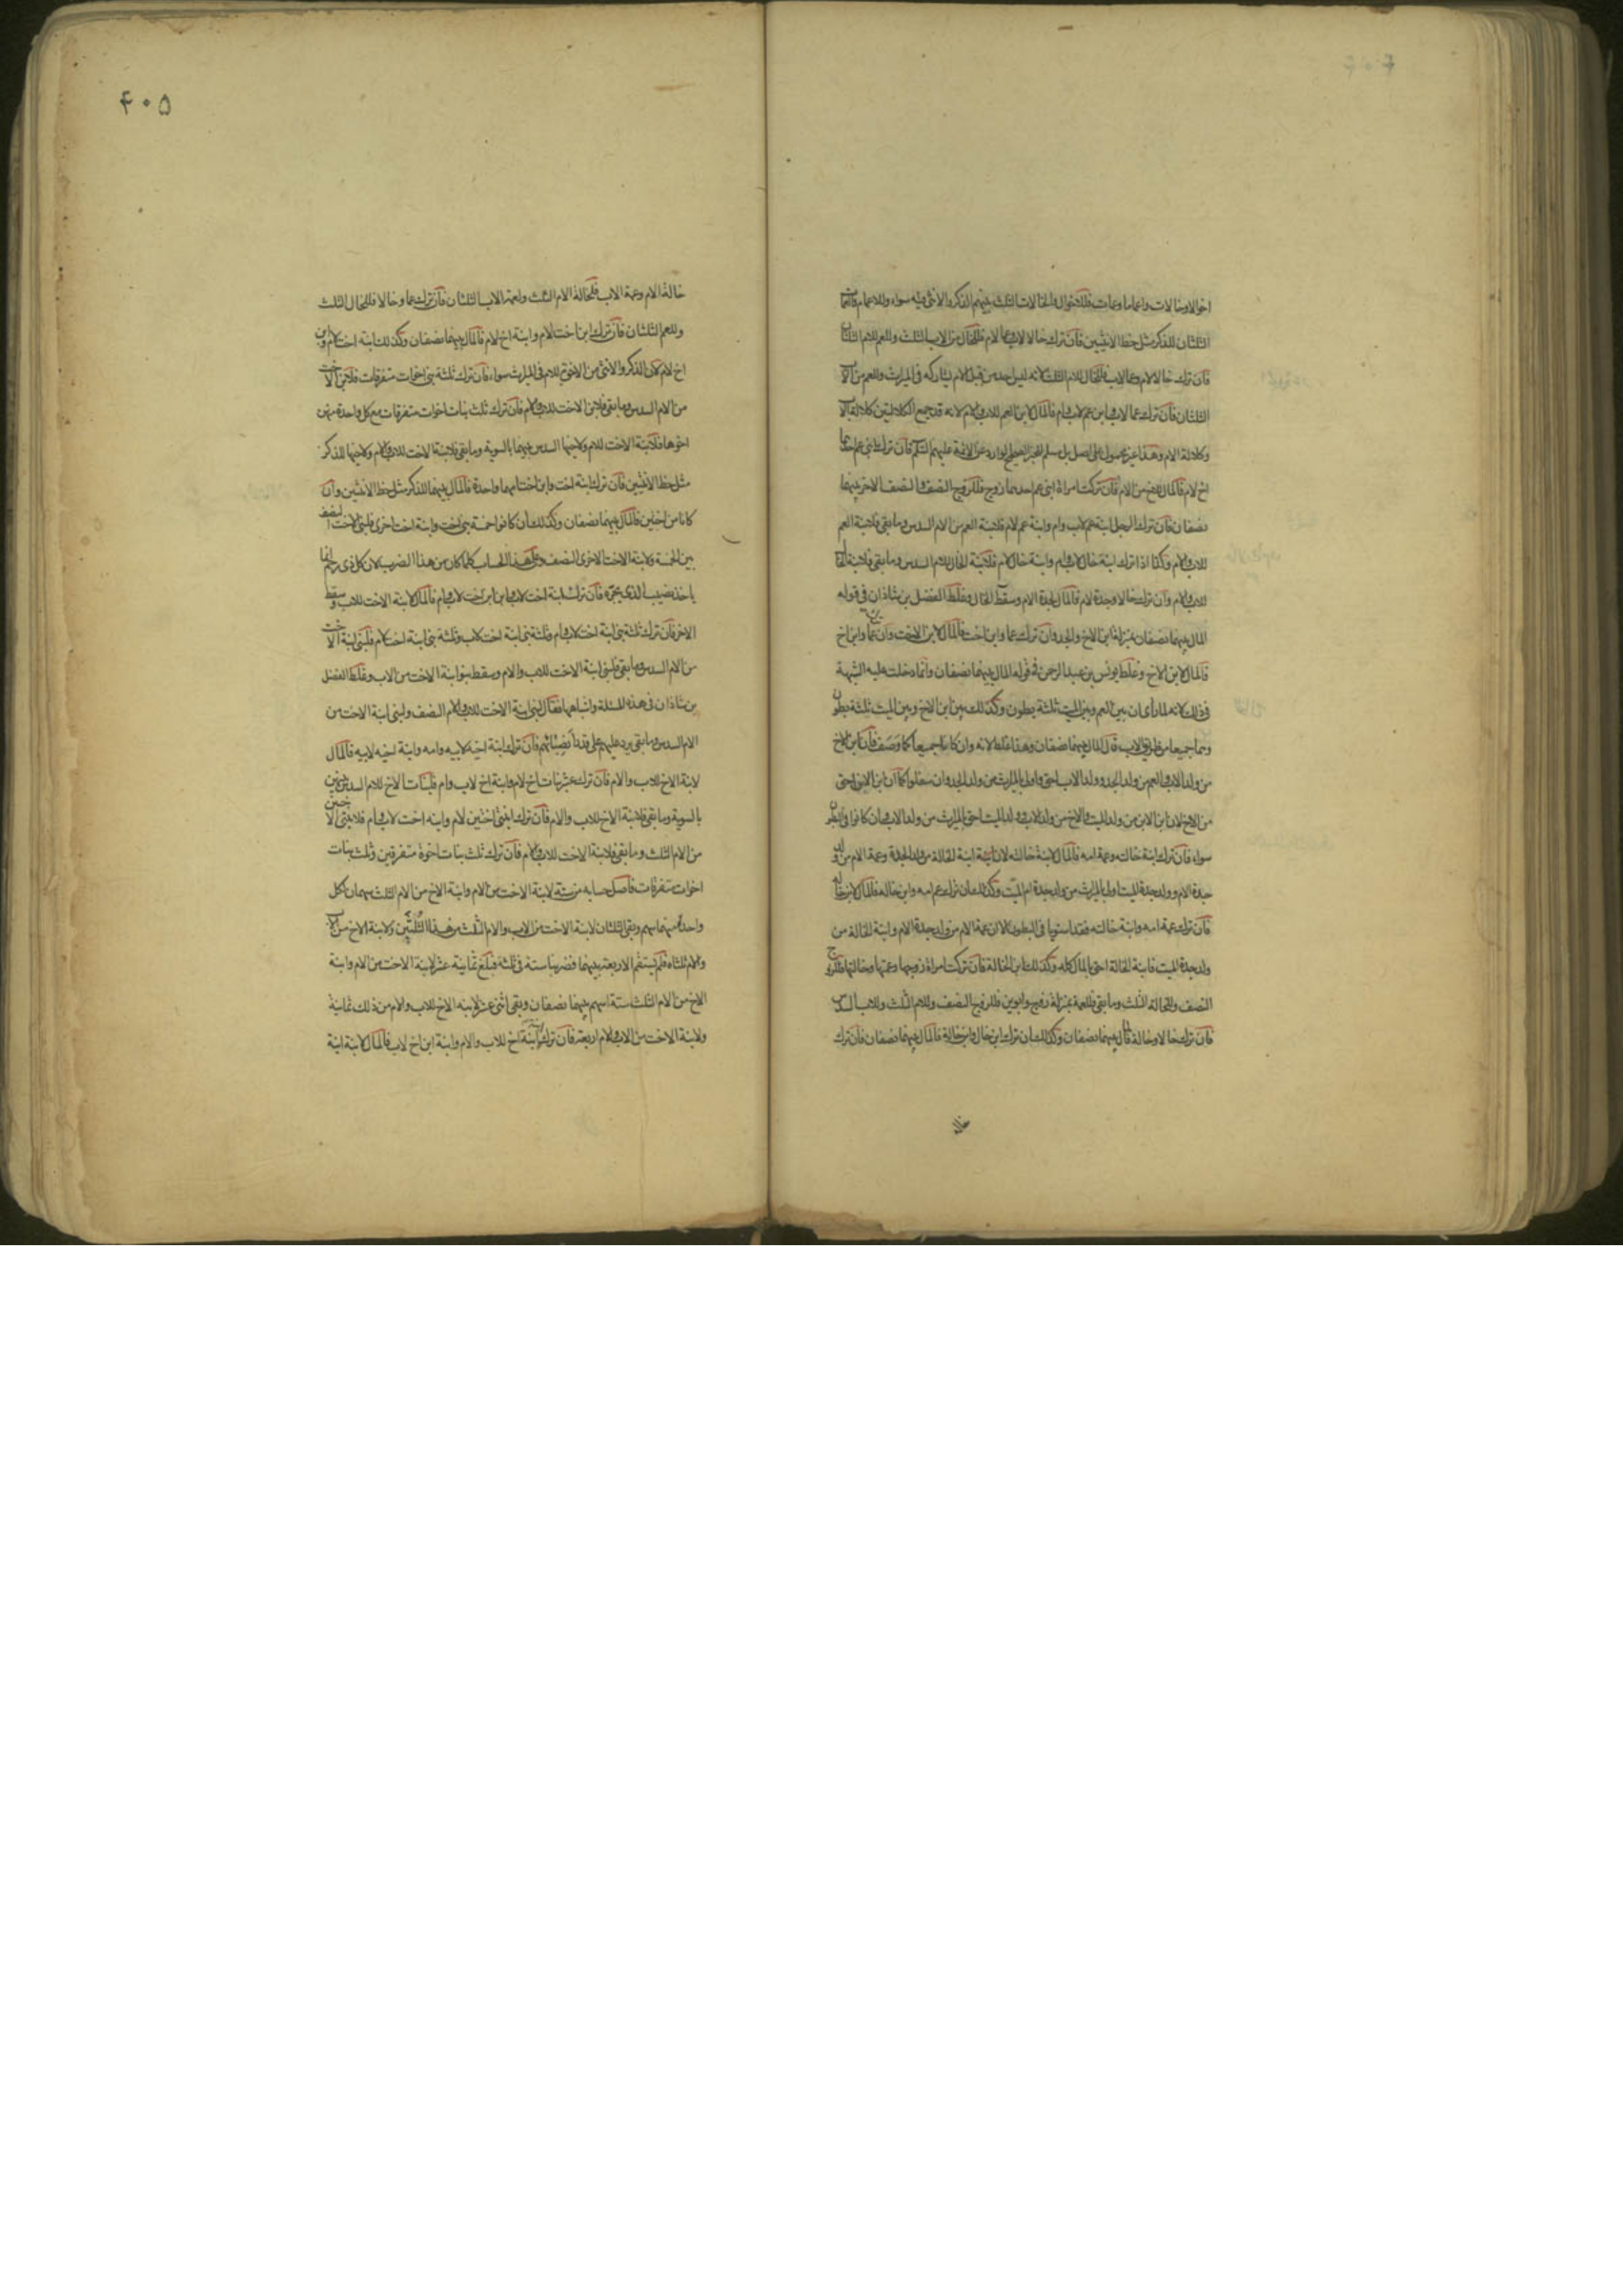 اخوالا وخالات واعماما وعمات فللاخوال والخالات الثلث بينهم الذكر والانثى فيه سواء وللاعمام والعمات
الثلثان للذكر مثل حظ الانثيين فان ترك خالا لاب وعما لام فللخال من الاب الثلث وللعم للام الثلثان
فان ترك خالا لام وعما لاب فللخال للام الثلث لانه ليس احد من قبل الام يشاركه في الميراث وللعم من الاب
الثلثان فان ترك عما لاب وابن عم لاب وام فالمال لابن العم للاب والام لانه قد جمع الكلالتين كلالة الاب
وكلالة الام وهذا غير محمول على اصل بل مسلم للخبر الصحيح الوارد عن الائمة عليهم السلم فان ترك ابني عم احدهما
اخ لام فالمال للاخ من الام فان تركت امراة ابنى عم احدهما زوج فللزوج النصف والنصف الاخر بينهما
نصفان فان ترك الرجل ابنة عم لاب وام وابنة عم لام فلابنة العم من الام السدس وما بقى فلابنة العم
للاب والام وكذا اذا ترك ابنة خال لاب وام وابنة خال لام فلابنة الخال للام السدس وما بقى فلابنة الخال
للاب والام وان ترك خالا وجدة لام فالمال لجدة الام وسقط الخال وغلط الفضل بن شاذان في قوله
المال بينهما نصفان بمنزلة ابن الاخ والجد وان ترك عما وابن اخت فالمال لابن الاخت وان ترك عما وابن اخ
فالمال لابن الاخ وغلط يونس بن عبد الرحمن في قوله المال بينهما نصفان وانما دخلت عليه الشبهة
في ذلك لانه لما راى ان بين العم وبين الميت ثلثة بطون وكذلك بين ابن الاخ وبين الميت ثلثة بطون
وهما جميعا من طريق الاب قال المال بينهما نصفان وهذا غلط لانه وان كانا جميعا كما وصف فان ابن الاخ
من ولد الاب والعم من ولد الجد وولد الاب احق واولى بالميراث من ولد الجد وان سفلوا كما ان ابن الابن احق
من الاخ لان ابن الابن من ولد الميت والاخ من ولد الاب وولد الميت احق بالميراث من ولد الاب وان كانوا في البطون
سواء فان ترك ابنة خالته وعمة امه فالمال لابنة خالته لان ابنة الخالة من ولد الجدة وعمة الام من ولد
جدة الام وولد جدة الميت اولى بالميراث من ولد جدة ام الميت وكذلك ان ترك عم امه وابن خاله فالمال لابن خاله
فان ترك عمة امه وابنة خالته فقد استويا في البطون الا ان عمة الام من ولد جدة الام وابنة الخالة من
ولد جدة الميت فابنة الخالة احق بالمال كله وكذلك ابن الخالة فان تركت امراة زوجها وعمتها وخالتها فللزوج
النصف وللخالة الثلث وما بقى فللعمة بمنزلة زوج وابوين فللزوج النصف وللام الثلث وللاب السدس
فان ترك خالا وخالة فالمال بينهما نصفان وكذلك ان ترك ابن خال وابن خالة فالمال بينهما نصفان فان ترك
۴۰۵
خالة الام وعمة الاب فلخالة الام الثلث ولعمة الاب الثلثان فان ترك عما وخالا فللخال الثلث
وللعم الثلثان فان ترك ابن اخت لام وابنة اخ لام فالمال بينهما نصفان وكذلك ابنة اخت لام وابن
اخ لام لان الذكر والانثى من الاخوة للام في الميراث سواء فان ترك ثلثة بنى اخوات متفرقات فلابن الاخت
من الام السدس وما بقى فلابن الاخت للاب والام فان ترك ثلث بنات اخوات متفرقات مع كل واحدة منهن
اخوها فلابنة الاخت للام ولاخيها السدس بينهما بالسوية وما بقى فلابنة الاخت للاب والام ولاخيها للذكر
مثل حظ الانثيين فان ترك ابنة اخت وابن اخت امهما واحدة فالمال بينهما للذكر مثل حظ الانثيين وان
كانا من اختين فالمال بينهما نصفان وكذلك ان كانوا خمسة بنى اخت وابنة اخت اخرى فلبنى الاخت النصف
بين الخمسة ولابنة الاخت الاخرى النصف وعلى هذا الحساب كلما كان من هذا الضرب لان كل ذى رحم انما
ياخذ نصيب الذى يجره فان ترك ابنة اخت لاب وابن ابن اخت لاب وام فالمال لابنة الاخت للاب وسقط
الاخر فان ترك ثلثة بنى ابنة اخت لاب وام وثلثة بنى ابنة اخت لاب وثلثة بنى ابنة اخت لام فلبنى ابنة الاخت
من الام السدس وما بقى فلبنى ابنة الاخت للاب والام وسقط بنو ابنة الاخت من الاب وغلط الفضل
بن شاذان في هذه المسئلة واشباهها فقال لبنى ابنة الاخت للاب والام النصف ولبنى ابنة الاخت من
الام السدس وما بقى يرد عليهم على قدر انصبائهم فان ترك ابنة اخيه لابيه وامه وابنة اخيه لابيه فالمال
لابنة الاخ للاب والام فان ترك عشر بنات اخ لام وابنة اخ لاب وام فلبنات الاخ للام السدس بينهن
بالسوية وما بقى فلابنة الاخ للاب والام فان ترك ابنتى اختين لام وابنة اخت لاب وام فلابنتى الاختين
من الام الثلث وما بقى فلابنة الاخت للاب والام فان ترك ثلث بنات اخوة متفرقين وثلث بنات
اخوات متفرقات فاصل حسابه من ستة لابنة الاخت من الام وابنة الاخ من الام الثلث سهمان لكل
واحدة منهما سهم وبقى الثلثان لابنة الاخت من الاب والام الثلث من هذا الثلثين ولابنة الاخ من الاب
والام ثلثاه فلم يستقم الاربعة بينهما فضربنا ستة في ثلثة فبلغ ثمانية عشر لابنة الاخت من الام وابنة
الاخ من الام الثلث ستة اسهم بينهما نصفان وبقى اثنى عشر لابنة الاخ للاب والام من ذلك ثمانية
ولابنة الاخت من الاب والام اربعة فان ترك ابنة ابنة اخ للاب والام وابنة ابن اخ لاب فالمال لابنة ابنة